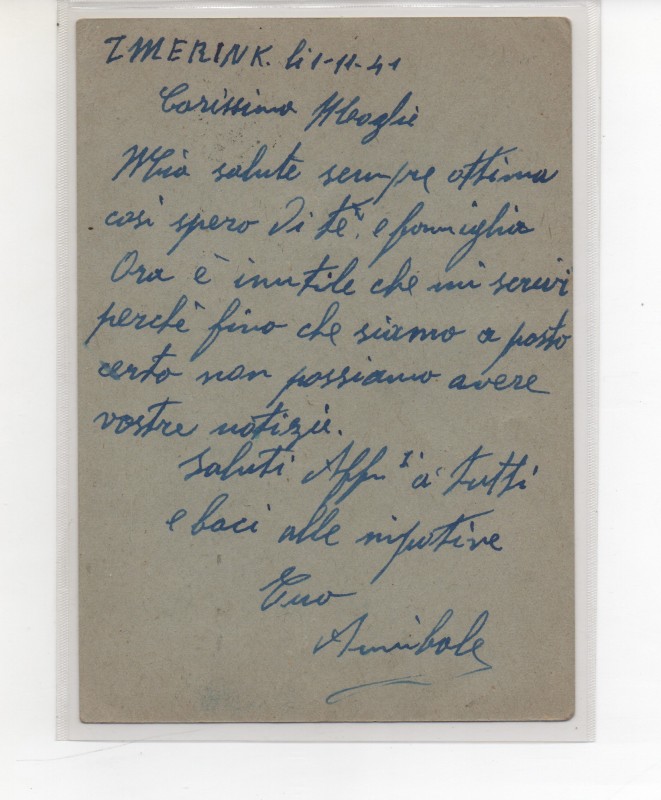 ZMERINK. li 1-11-41
Carissima Moglie
Mia salute sempre ottima
così spero di te, e famiglia
Ora è inutile che mi scrivi
perchè fino che siamo a posto
certo non possiamo avere
vostre notizie.
Saluti Aff.i a tutti
e baci alle nipotine
Tuo
Annibale